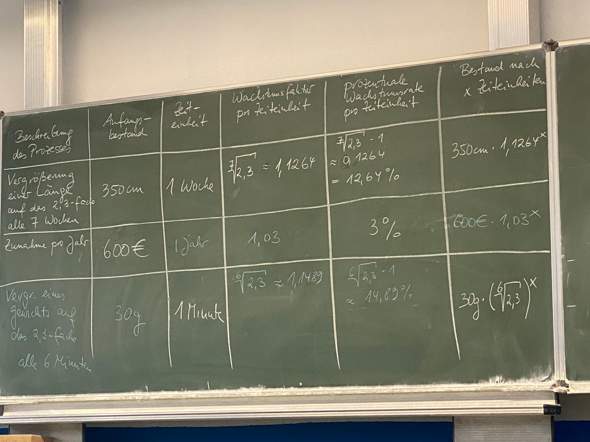 Beschreibung
des Prozesses
Anfangs-
bestand
Zeit-
einheit
Wachstumsfaktor
pro Zeiteinheit
prozentuale
Wachstumsrate
pro Zeiteinheit
Bestand nach
x Zeiteinheiten
Vergrößerung
einer Länge
auf das 2,3-fache
alle 7 Wochen
350cm
1 Woche
⁷√2,3 ≈ 1,1264
⁷√2,3 - 1
≈ 0,1264
= 12,64%
350cm · 1,1264ˣ
Zunahme pro Jahr
600€
1 Jahr
1,03
3%
600€ · 1,03ˣ
Vergr. eines
Gewichts auf
das 2,3-fache
alle 6 Minuten
30g
1 Minute
⁶√2,3 ≈ 1,1489
⁶√2,3 - 1
≈ 14,89%
30g · (⁶√2,3)ˣ